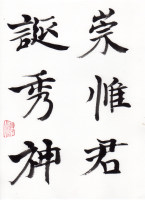 崇惟君
誕秀神